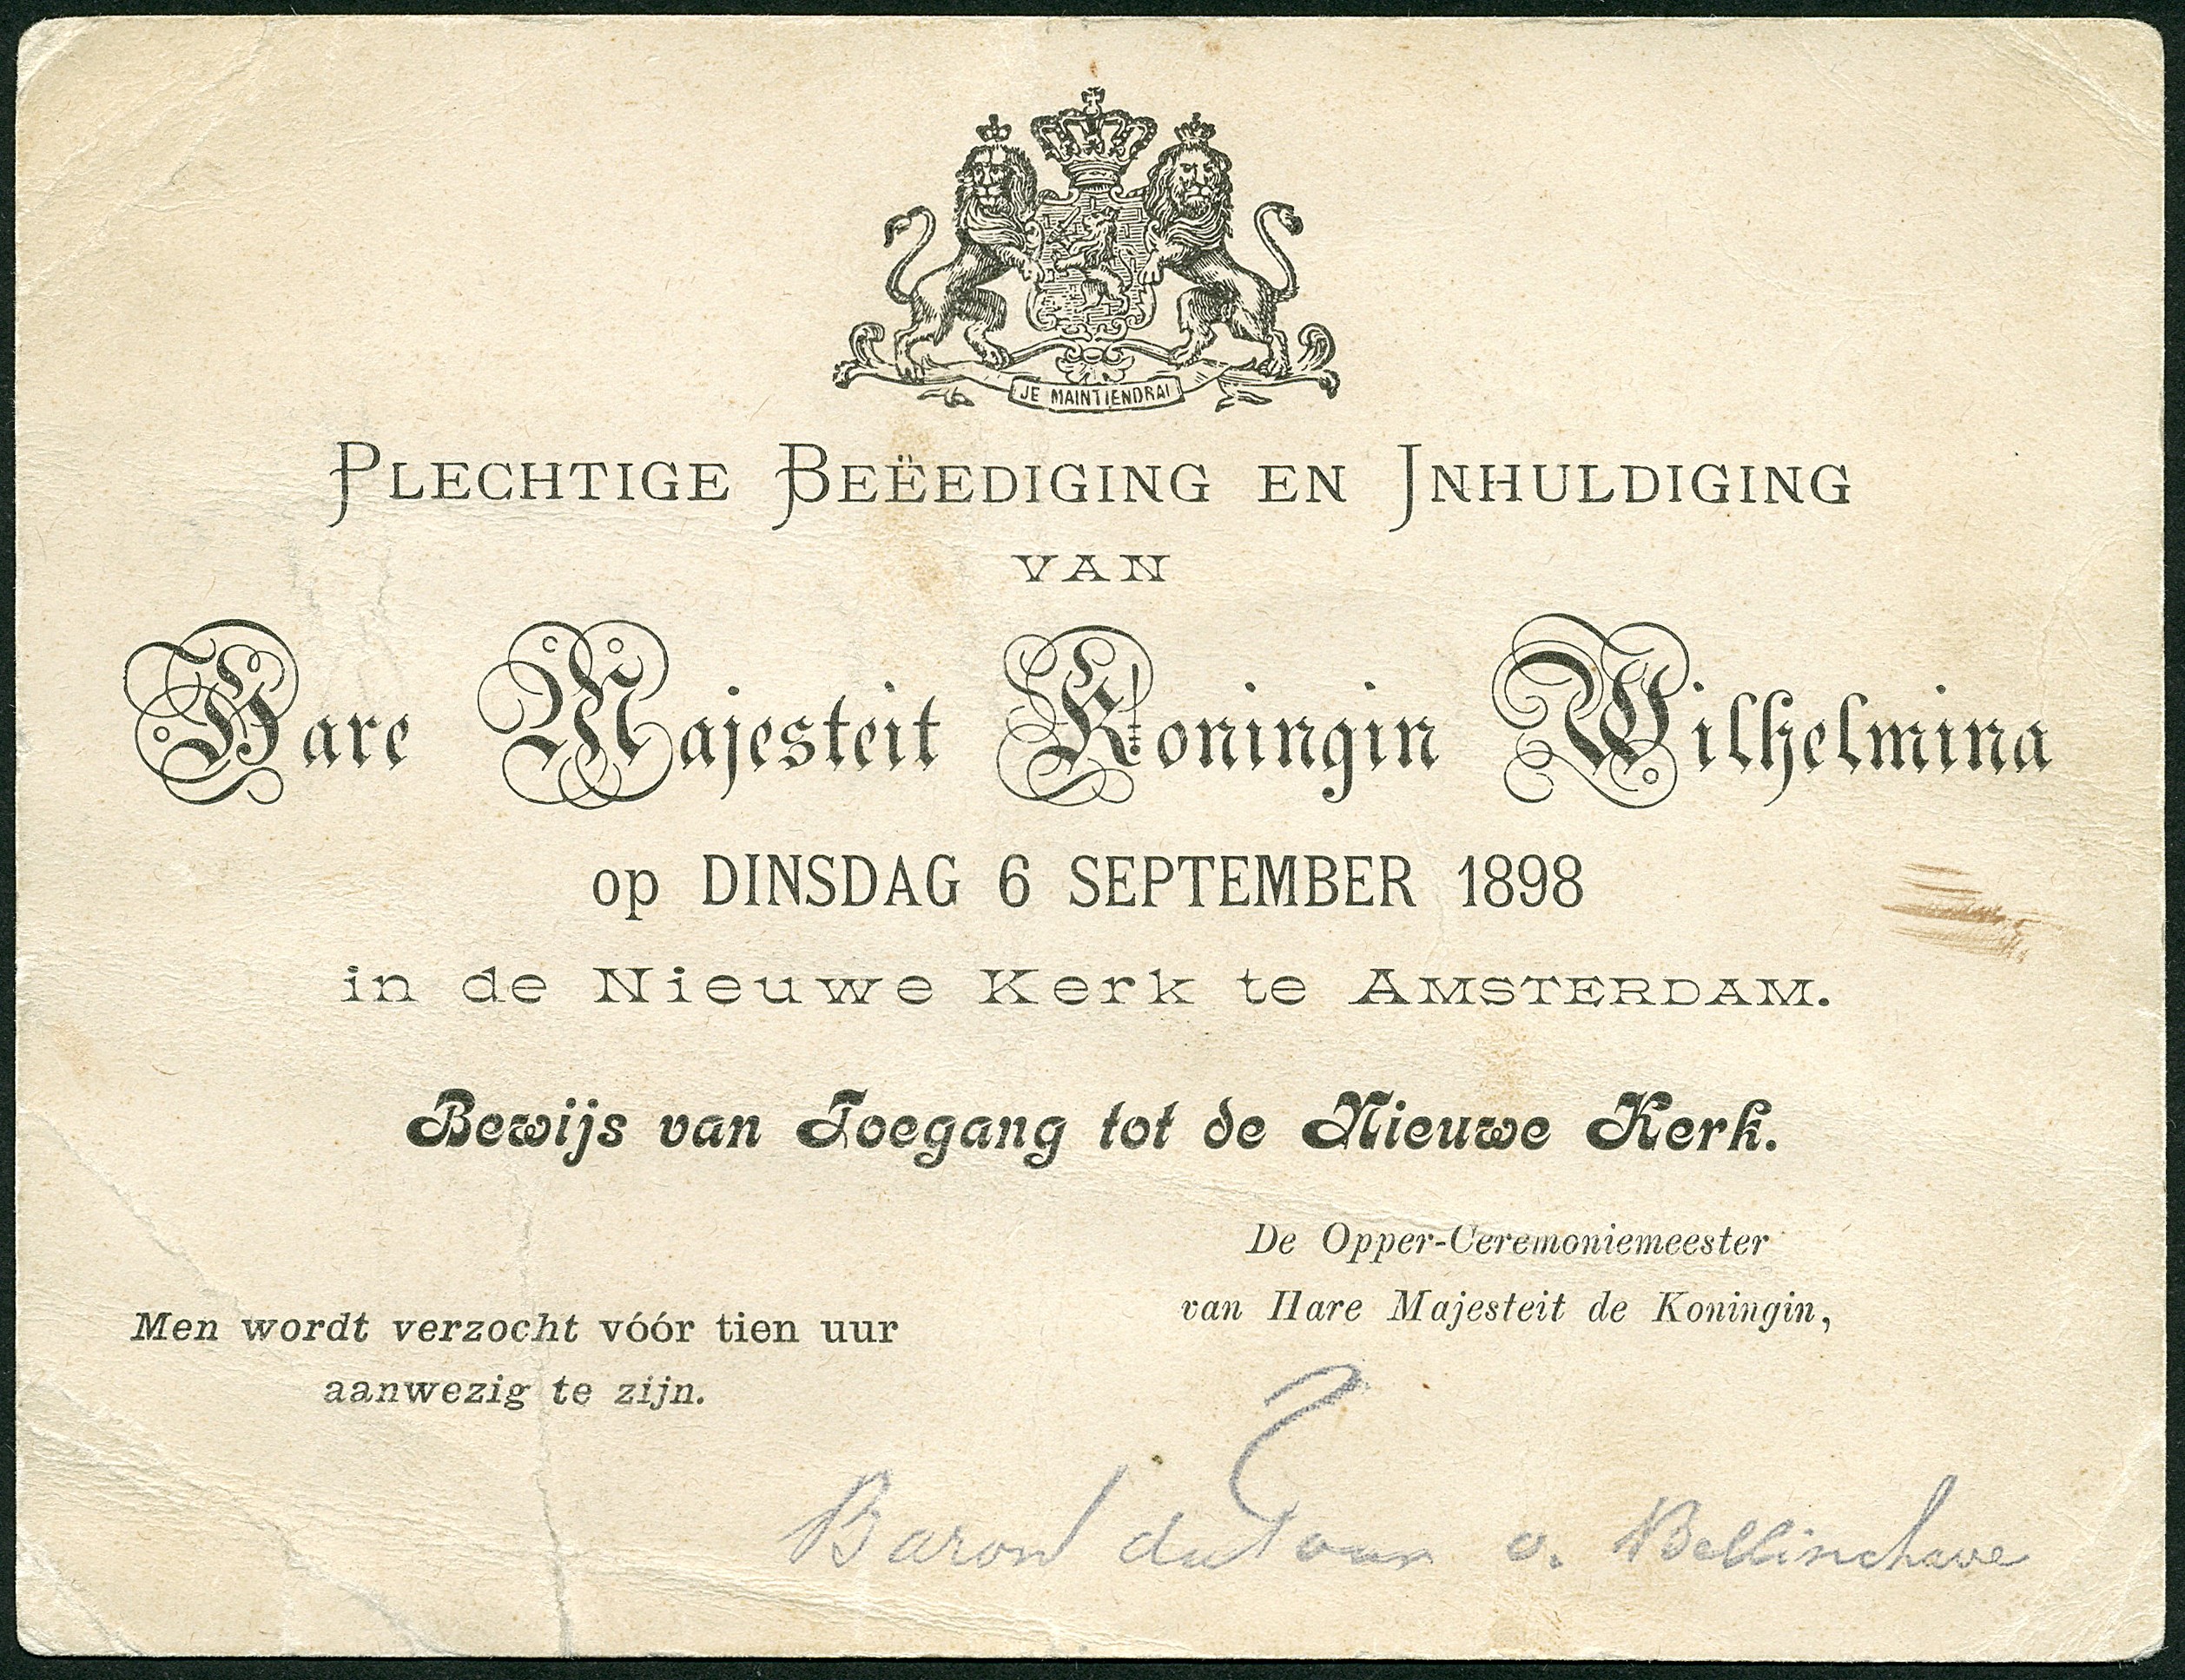 JE MAINTIENDRAI
PLECHTIGE BEËEDIGING EN INHULDIGING
VAN
Hare Majesteit Koningin Wilhelmina
op DINSDAG 6 SEPTEMBER 1898
in de Nieuwe Kerk te AMSTERDAM.
Bewijs van Toegang tot de Nieuwe Kerk.
De Opper-Ceremoniemeester
van Hare Majesteit de Koningin,
Men wordt verzocht vóór tien uur
aanwezig te zijn.
Baron du Tour v. Bellinchave